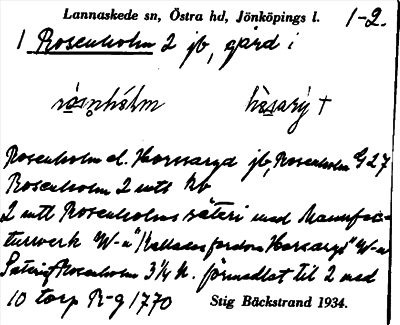 Lannaskede sn, Östra hd, Jönköpings l. 1-2.
1 Rosenholm 2 jb, gård i
rosnhólm hòsarý +
Rosenholm el. Horsaryd jb, Rosenholm G 27
Rosenholm 2 mtl kb
2 mtl Rosenholms säteri med Manufac-
turwerk W-n Kallades fordom Horsaryd W-n
Rosenholm 3 1/4 H. förmedlat til 2 med
10 torp R-g 1770 Stig Bäckstrand 1934.